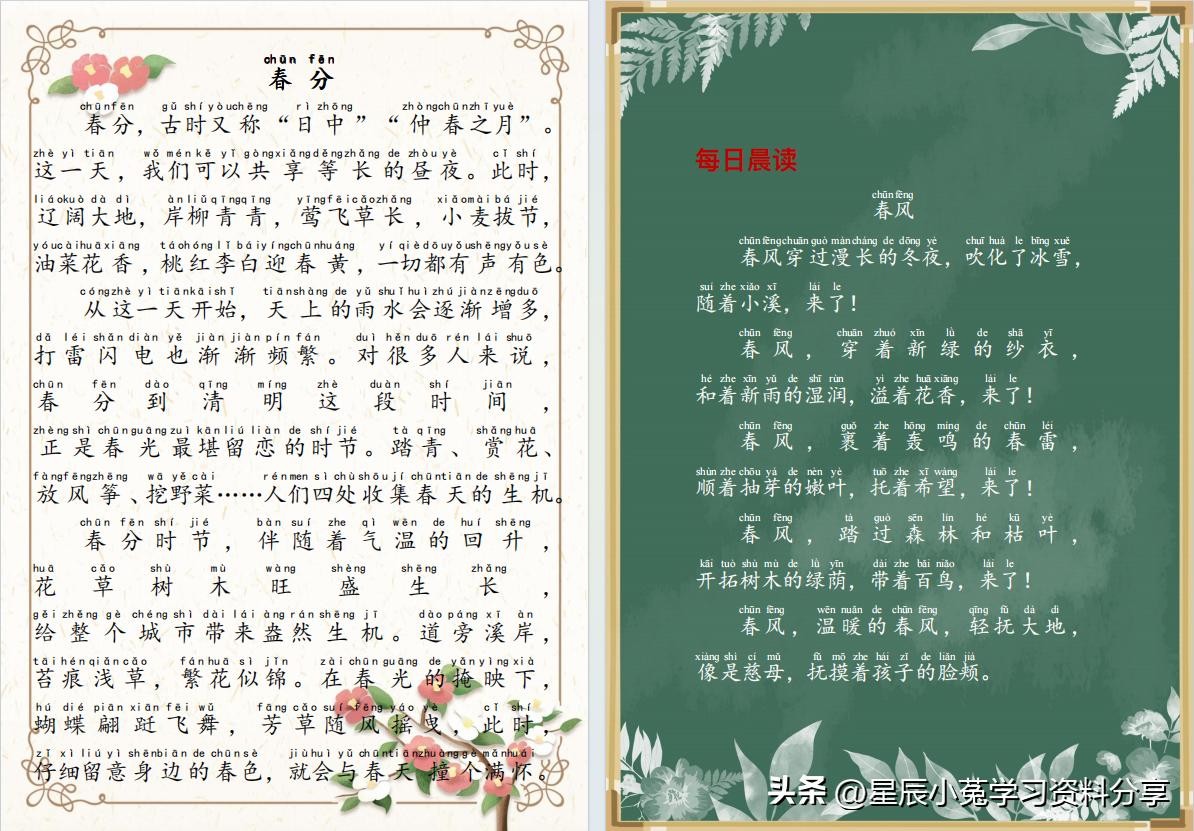 chūn fēn
春 分
chūnfēn gǔ shí yòuchēng rì zhōng zhòngchūnzhīyuè
春分，古时又称“日中”“仲春之月”。
zhè yì tiān wǒ ménkě yǐ gòngxiǎngděngzhǎng de zhòuyè cǐ shí
这一天，我们可以共享等长的昼夜。此时，
liáokuò dà dì ànliǔqīngqīng yīngfēicǎozhǎng xiǎomàibá jié
辽阔大地，岸柳青青，莺飞草长，小麦拔节，
yóucàihuāxiāng táohónglǐ báiyíngchūnhuáng yí qièdōuyǒushēngyǒusè
油菜花香，桃红李白迎春黄，一切都有声有色。
cóngzhè yì tiānkāishǐ tiānshàng de yǔ shuǐ huì zhú jiànzēngduō
从这一天开始，天上的雨水会逐渐增多，
dǎ léi shǎn diàn yě jiàn jiàn pín fán duì hěn duō rén lái shuō
打雷闪电也渐渐频繁。对很多人来说，
chūn fēn dào qīng míng zhè duàn shí jiān
春分到清明这段时间，
zhèng shì chūnguāngzuì kānliú liàn de shí jié tà qīng shǎnghuā
正是春光最堪留恋的时节。踏青、赏花、
fàngfēngzhēng wā yě cài rénmen sì chùshōují chūntiān de shēng jī
放风筝、挖野菜……人们四处收集春天的生机。
chūn fēn shí jié bàn suí zhe qì wēn de huí shēng
春分时节，伴随着气温的回升，
huā cǎo shù mù wàng shèng shēng zhǎng
花草树木旺盛生长，
gěi zhěng gè chéng shì dài lái àng rán shēng jī dào páng xī àn
给整个城市带来盎然生机。道旁溪岸，
tāi hén qiǎn cǎo fán huā sì jǐn zài chūn guāng de yǎn yìng xià
苔痕浅草，繁花似锦。在春光的掩映下，
hú dié piān xiān fēi wǔ fāng cǎo suí fēng yáo yè cǐ shí
蝴蝶翩跹飞舞，芳草随风摇曳，此时，
zǐ xì liú yì shēnbiān de chūnsè jiù huì yǔ chūntiānzhuànggè mǎnhuái
仔细留意身边的春色，就会与春天撞个满怀。
每日晨读
chūn fēng
春风
chūn fēng chuān guò màn cháng de dōng yè chuī huà le bīng xuě
春风穿过漫长的冬夜，吹化了冰雪，
suí zhe xiǎo xī lái le
随着小溪，来了！
chūn fēng chuān zhuó xīn lǜ de shā yī
春风，穿着新绿的纱衣，
hé zhe xīn yǔ de shī rùn yì zhe huā xiāng lái le
和着新雨的湿润，溢着花香，来了！
chūn fēng guǒ zhe hōng míng de chūn léi
春风，裹着轰鸣的春雷，
shùn zhe chōu yá de nèn yè tuō zhe xī wàng lái le
顺着抽芽的嫩叶，托着希望，来了！
chūn fēng tà guò sēn lín hé kū yè
春风，踏过森林和枯叶，
kāi tuò shù mù de lǜ yīn dài zhe bǎi niǎo lái le
开拓树木的绿荫，带着百鸟，来了！
chūn fēng wēn nuǎn de chūn fēng qīng fǔ dà dì
春风，温暖的春风，轻抚大地，
xiàng shì cí mǔ fǔ mō zhe hái zǐ de liǎn jiá
像是慈母，抚摸着孩子的脸颊。
头条 @星辰小兔学习资料分享